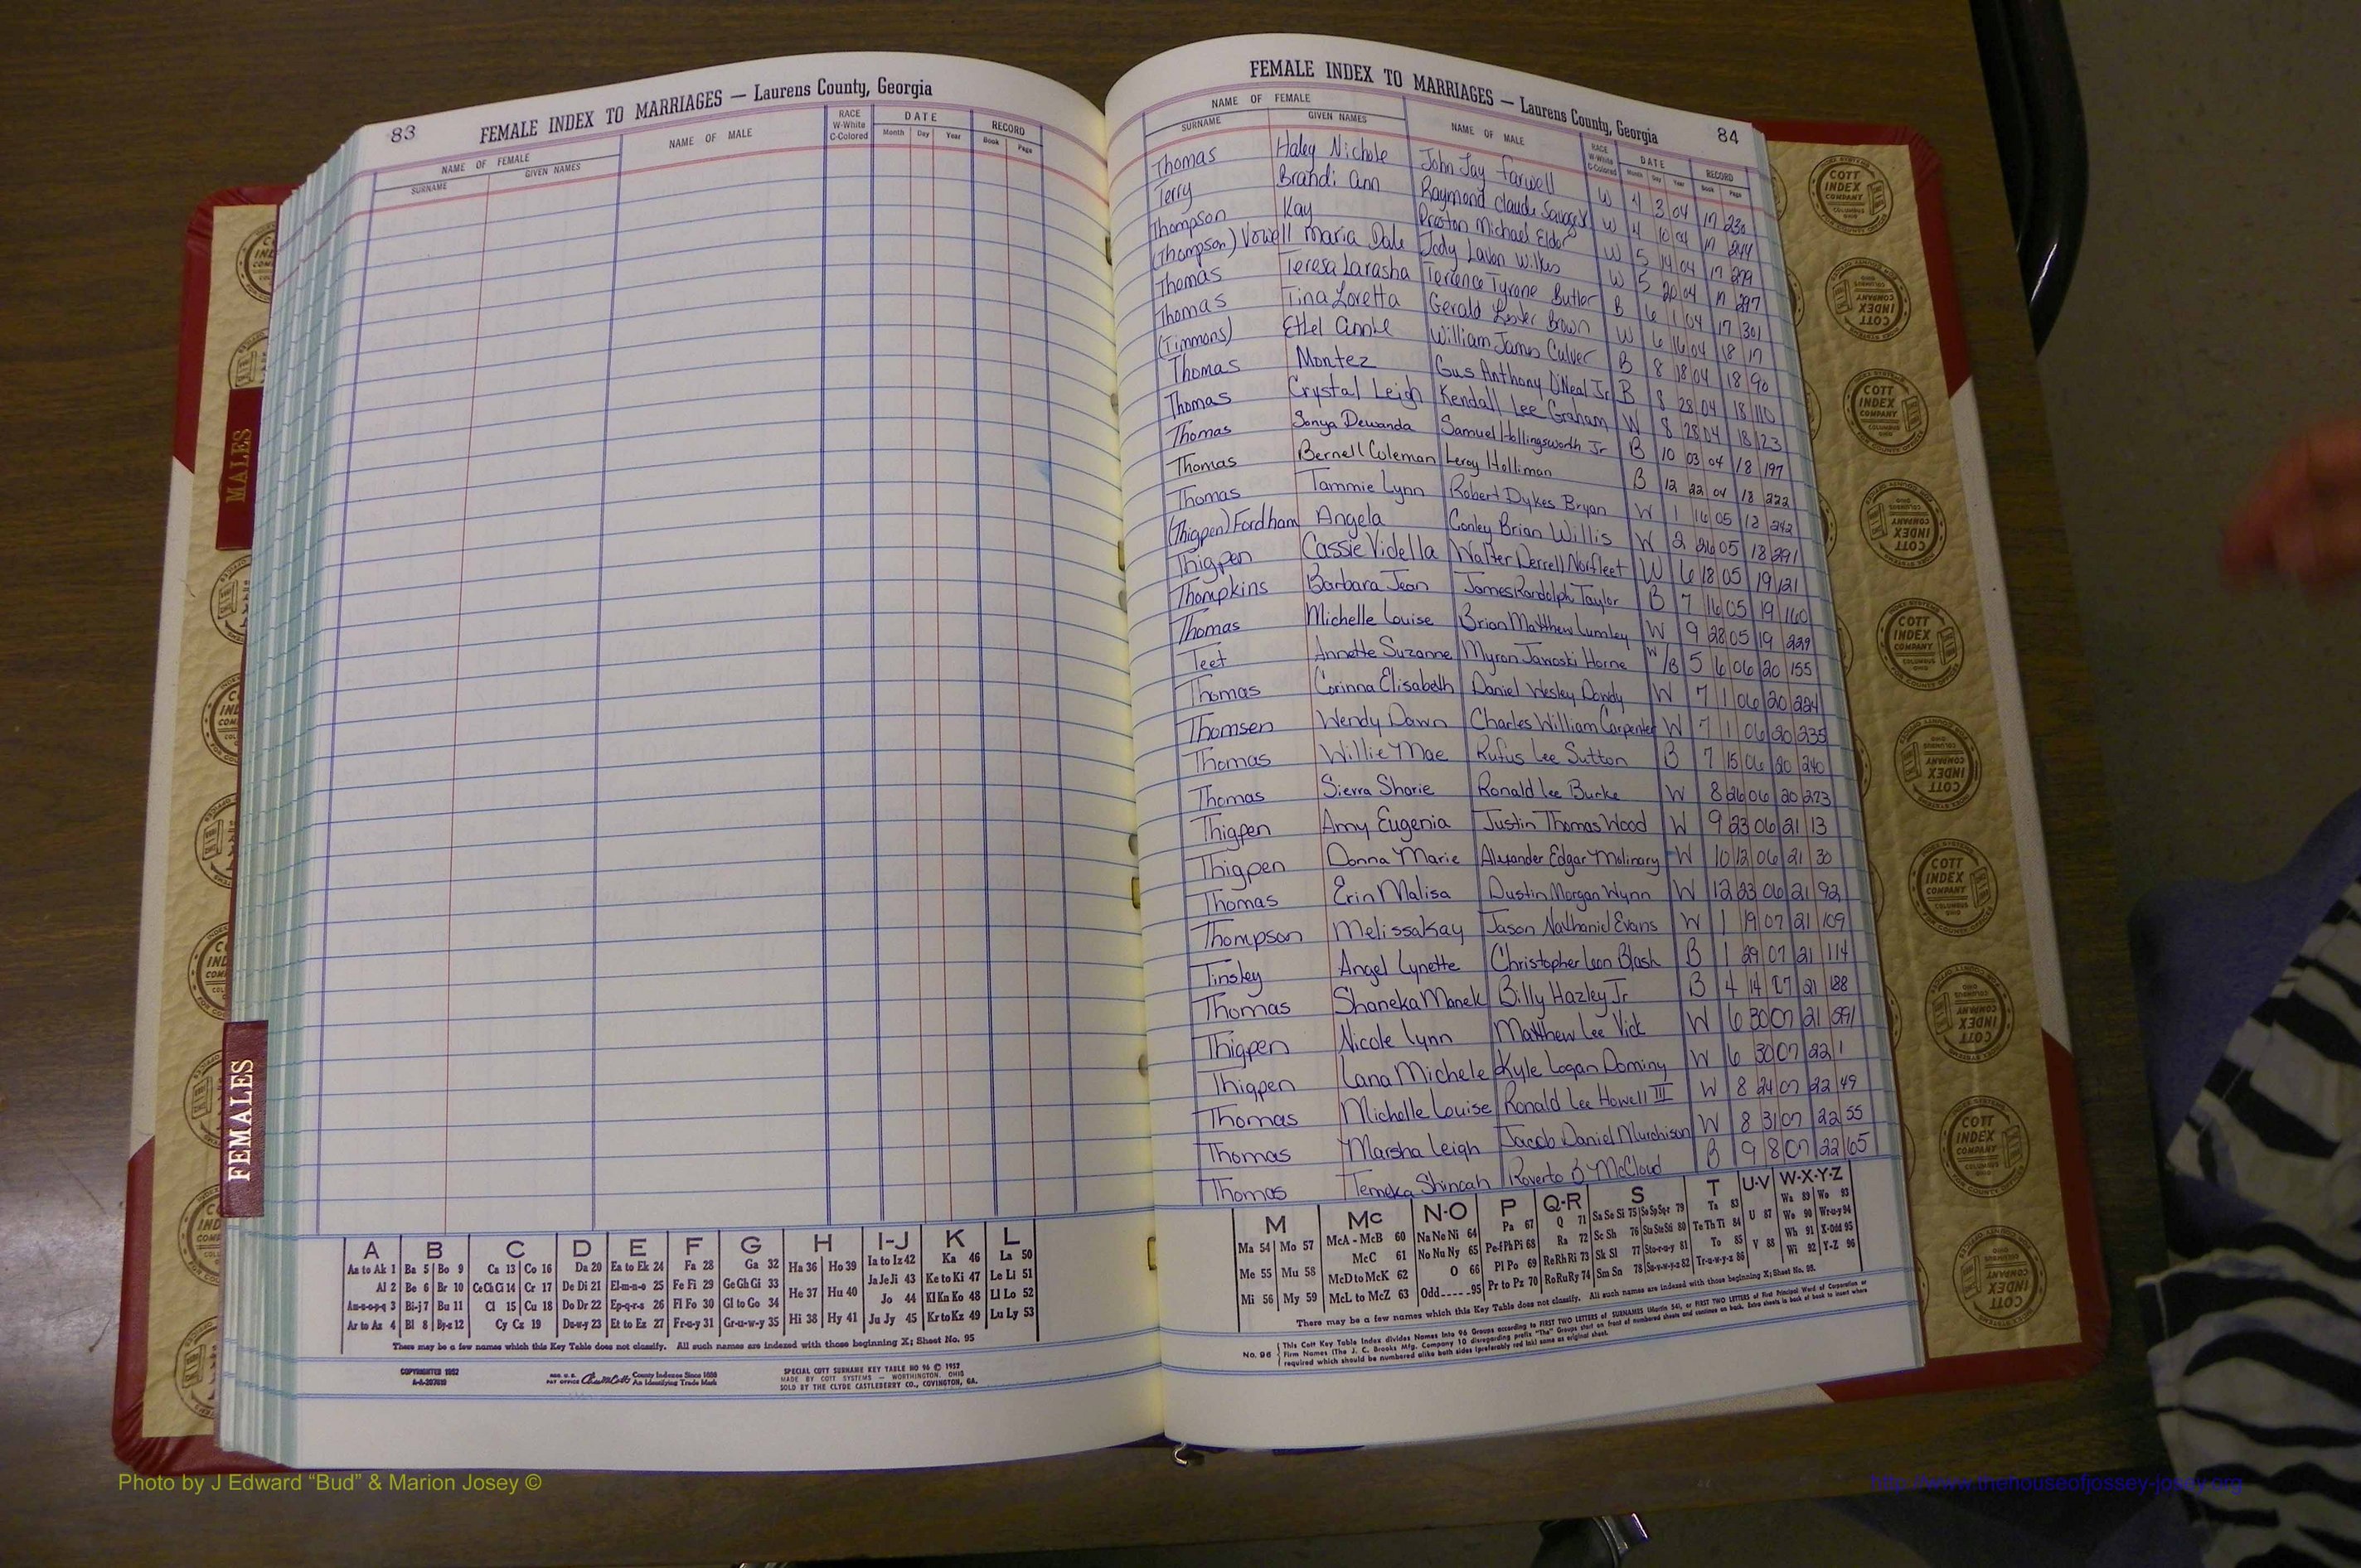 83
FEMALE INDEX TO MARRIAGES — Laurens County, Georgia
NAME OF FEMALE NAME OF MALE RACE W-White C-Colored DATE RECORD
SURNAME GIVEN NAMES Month Day Year Book Page
FEMALE INDEX TO MARRIAGES — Laurens County, Georgia
84
NAME OF FEMALE NAME OF MALE RACE W-White C-Colored DATE RECORD
SURNAME GIVEN NAMES Month Day Year Book Page
Thomas Haley Nichole John Jay Farwell W 4 3 04 17 230
Terry Brandi Ann Raymond Claude W 4 10 04 17 244
Thompson Kay Preston Michael Elder W 5 14 04 17 279
(Thompson) Vowell Maria Dale Jody Lavon Wilkes W 5 20 04 17 297
Thomas Teresa Larasha Terrence Tyrone Butler B 6 1 04 17 301
Thomas Tina Loretta Gerald Lester Brown W 6 16 04 18 17
(Timmons) Ethel Annie William James Culver B 8 18 04 18 90
Thomas Montez Gus Anthony O'Neal Jr B 8 28 04 18 110
Thomas Crystal Leigh Kendall Lee Graham W 8 28 04 18 123
Thomas Sonya Dewanda Samuel Hollingsworth Jr B 10 03 04 18 197
Thomas Bernell Coleman Leroy Holliman B 12 22 04 18 222
Thomas Tammie Lynn Robert Dykes Bryan W 1 16 05 18 242
(Thigpen) Fordham Angela Conley Brian Willis W 2 26 05 18 291
Thigpen Cassie Vidella Walter Derrell Norfleet W 6 18 05 19 121
Thompkins Barbara Jean James Randolph Taylor B 7 16 05 19 160
Thomas Michelle Louise Brian Matthew Lumley W 9 28 05 19 229
Teet Annette Suzanne Myron Jawoski Horne W/B 5 6 06 20 155
Thomas Corinna Elisabeth Daniel Wesley Dowdy W 7 1 06 20 224
Thomsen Wendy Dawn Charles William Carpenter W 7 1 06 20 235
Thomas Willie Mae Rufus Lee Sutton B 7 15 06 20 240
Thomas Sierra Sharie Ronald Lee Burke W 8 26 06 20 273
Thigpen Amy Eugenia Justin Thomas Wood W 9 23 06 21 13
Thigpen Donna Marie Alexander Edgar Molinary W 10 12 06 21 30
Thomas Erin Malisa Dustin Morgan Wynn W 12 23 06 21 92
Thompson Melissa Kay Jason Nathaniel Evans W 1 19 07 21 109
Tinsley Angel Lynette Christopher Leon Blash B 1 29 07 21 114
Thomas Shaneka Monek Billy Hazley Jr B 4 14 07 21 188
Thigpen Nicole Lynn Matthew Lee Vick W 6 30 07 21 291
Thigpen Lana Michele Kyle Logan Dominy W 6 30 07 22 1
Thomas Michelle Louise Ronald Lee Howell III W 8 24 07 22 49
Thomas Marsha Leigh Jacob Daniel Murchison W 8 31 07 22 55
Thomas Temeka Shincah Roverto B McCloud B 9 8 07 22 65
MALES
FEMALES
A B C D E F G H I-J K L
Aa to Ak 1 Ba 5 Bo 9 Ca 13 Co 16 Da 20 Ea to Ek 24 Fa 28 Ga 32 Ha 36 Ho 39 Ia to Iz 42 Ka 46 La 50
Al 2 Be 6 Br 10 Ce Ch Ci 14 Cr 17 De Di 21 El-m-n-o 25 Fe Fi 29 Ge Gh Gi 33 He 37 Hu 40 Ja Je Ji 43 Ke to Ki 47 Le Li 51
Am-n-o-p-q 3 Bi-j 7 Bu 11 Cl 15 Cu 18 Do Dr 22 Ep-q-r-s 26 Fl Fo 30 Gl to Go 34 Jo 44 Kl Kn Ko 48 Ll Lo 52
Ar to Az 4 Bl 8 By-z 12 Cy Cz 19 Du-w-y 23 Et to Ez 27 Fr-u-y 31 Gr-u-w-y 35 Hi 38 Hy 41 Ju Jy 45 Kr to Kz 49 Lu Ly 53
There may be a few names which this Key Table does not classify. All such names are indexed with those beginning X; Sheet No. 95
COPYRIGHTED 1952
REG. U.S. PAT OFFICE County Indexes Since 1888 An Identifying Trade Mark
SPECIAL COTT SURNAME KEY TABLE NO 96 © 1952
MADE BY COTT SYSTEMS — WORTHINGTON, OHIO
SOLD BY THE CLYDE CASTLEBERRY CO., COVINGTON, GA.
M Mc N-O P Q-R S T U-V W-X-Y-Z
Ma 54 Mo 57 McA - McB 60 Na Ne Ni 64 Pa 67 Q 71 Sa Se Si 75 So Sp Sq-r 79 Ta 83 U 87 Wa 89 Wo 93
Me 55 Mu 58 McC 61 No Nu Ny 65 Pe-f Ph Pi 68 Ra 72 Sc Sh 76 Sta Ste Sti 80 Te Th Ti 84 We 90 Wr-u-y 94
McD to McK 62 O 66 Pl Po 69 Re Rh Ri 73 Sk Sl 77 Sto-r-u-y 81 To 85 V 88 Wh 91 X-Odd 95
Mi 56 My 59 McL to McZ 63 Odd 95 Pr to Pz 70 Ro Ru Ry 74 Sm Sn 78 Su-v-w-y-z 82 Tr-u-w-y-z 86 Wi 92 Y-Z 96
There may be a few names which this Key Table does not classify. All such names are indexed with those beginning X; Sheet No. 95.
No. 96 This Cott Key Table Index divides Names into 96 Groups according to FIRST TWO LETTERS of SURNAMES (Martin 54), or FIRST TWO LETTERS of First Principal Word of Corporation or
Firm Names (The J. C. Brooks Mfg. Company 10 disregarding prefix "The" Groups start on front of numbered sheets and continue on back. Extra sheets in back of book to insert where
required which should be numbered alike both sides (preferably red ink) same as original sheet.
COTT INDEX COMPANY COLUMBUS OHIO
Photo by J Edward “Bud” & Marion Josey ©
http://www.thehouseofjossey-josey.org